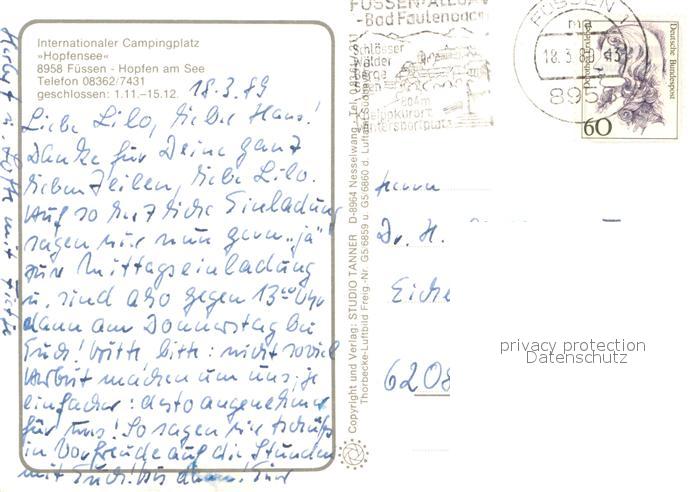 Internationaler Campingplatz
»Hopfensee«
8958 Füssen - Hopfen am See
Telefon 08362/7431
geschlossen: 1.11.–15.12.
18.3.89
Liebe Lilo, lieber Hans!
Danke für Deine ganz
lieben Zeilen, liebe Lilo.
Auf so herzliche Einladung
sagen wir nun gern „ja"
zur Mittagseinladung
u. sind also gegen 13⁰⁰ Uhr
dann am Donnerstag bei
Euch! Bitte bitte: nicht soviel
Arbeit machen um uns, je
einfacher: desto angenehmer
für uns! So sagen wir tschüß
in Vorfreude auf die Stunden
mit Euch! Bis dann! Eure
mit
Copyright und Verlag: STUDIO TANNER D-8964 Nesselwang
Thorbecke-Luftbild Freig.-Nr. G5/6859 u. G5/6860 d. Luftamt Südbayern
FÜSSEN-ALLGÄU
-Bad Faulenbach
Schlösser
Wälder
Berge
Seen
804m
Kneippkurort
Wintersportplatz
FÜSSEN 1
18.3.89
895
Deutsche Bundespost
60
Herrn
Dr. H.
Eiche
6208
privacy protection
Datenschutz